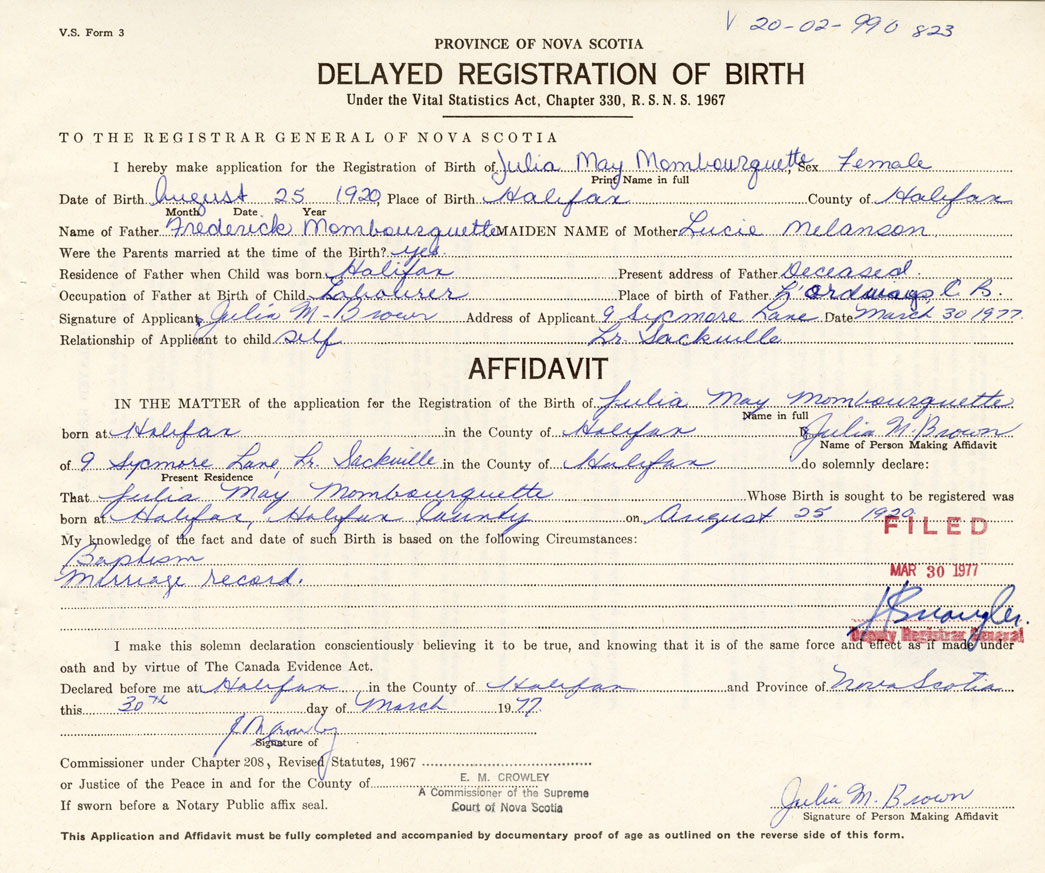 V.S. Form 3
V 20-02-990 823
PROVINCE OF NOVA SCOTIA
DELAYED REGISTRATION OF BIRTH
Under the Vital Statistics Act, Chapter 330, R. S. N. S. 1967
TO THE REGISTRAR GENERAL OF NOVA SCOTIA
I hereby make application for the Registration of Birth of Julia May Mombourguette, Sex Female
Print Name in full
Date of Birth August 25 1920, Place of Birth Halifax County of Halifax
Month Date Year
Name of Father Frederick Mombourguette MAIDEN NAME of Mother Lucie Melanson
Were the Parents married at the time of the Birth? yes.
Residence of Father when Child was born Halifax Present address of Father Deceased.
Occupation of Father at Birth of Child Labourer Place of birth of Father L'ordways, C. B.
Signature of Applicant Julia M. Brown Address of Applicant 9 Sycmore Lane Date March 30 1977.
Relationship of Applicant to child self Lr. Sackville
AFFIDAVIT
IN THE MATTER of the application for the Registration of the Birth of Julia May Mombourguette
Name in full
born at Halifax in the County of Halifax I, Julia M. Brown
Name of Person Making Affidavit
of 9 Sycmore Lane, Lr. Sackville in the County of Halifax do solemnly declare:
Present Residence
That Julia May Mombourguette Whose Birth is sought to be registered was
born at Halifax, Halifax County on August 25 1920
FILED
My knowledge of the fact and date of such Birth is based on the following Circumstances:
Baptism
Marriage record.
MAR 30 1977
Deputy Registrar General
I make this solemn declaration conscientiously believing it to be true, and knowing that it is of the same force and effect as if made under
oath and by virtue of The Canada Evidence Act.
Declared before me at Halifax in the County of Halifax and Province of Nova Scotia
this 30th day of March 1977.
Signature of
Commissioner under Chapter 208, Revised Statutes, 1967
or Justice of the Peace in and for the County of
E. M. CROWLEY
A Commissioner of the Supreme
Court of Nova Scotia
If sworn before a Notary Public affix seal.
Julia M. Brown
Signature of Person Making Affidavit
This Application and Affidavit must be fully completed and accompanied by documentary proof of age as outlined on the reverse side of this form.